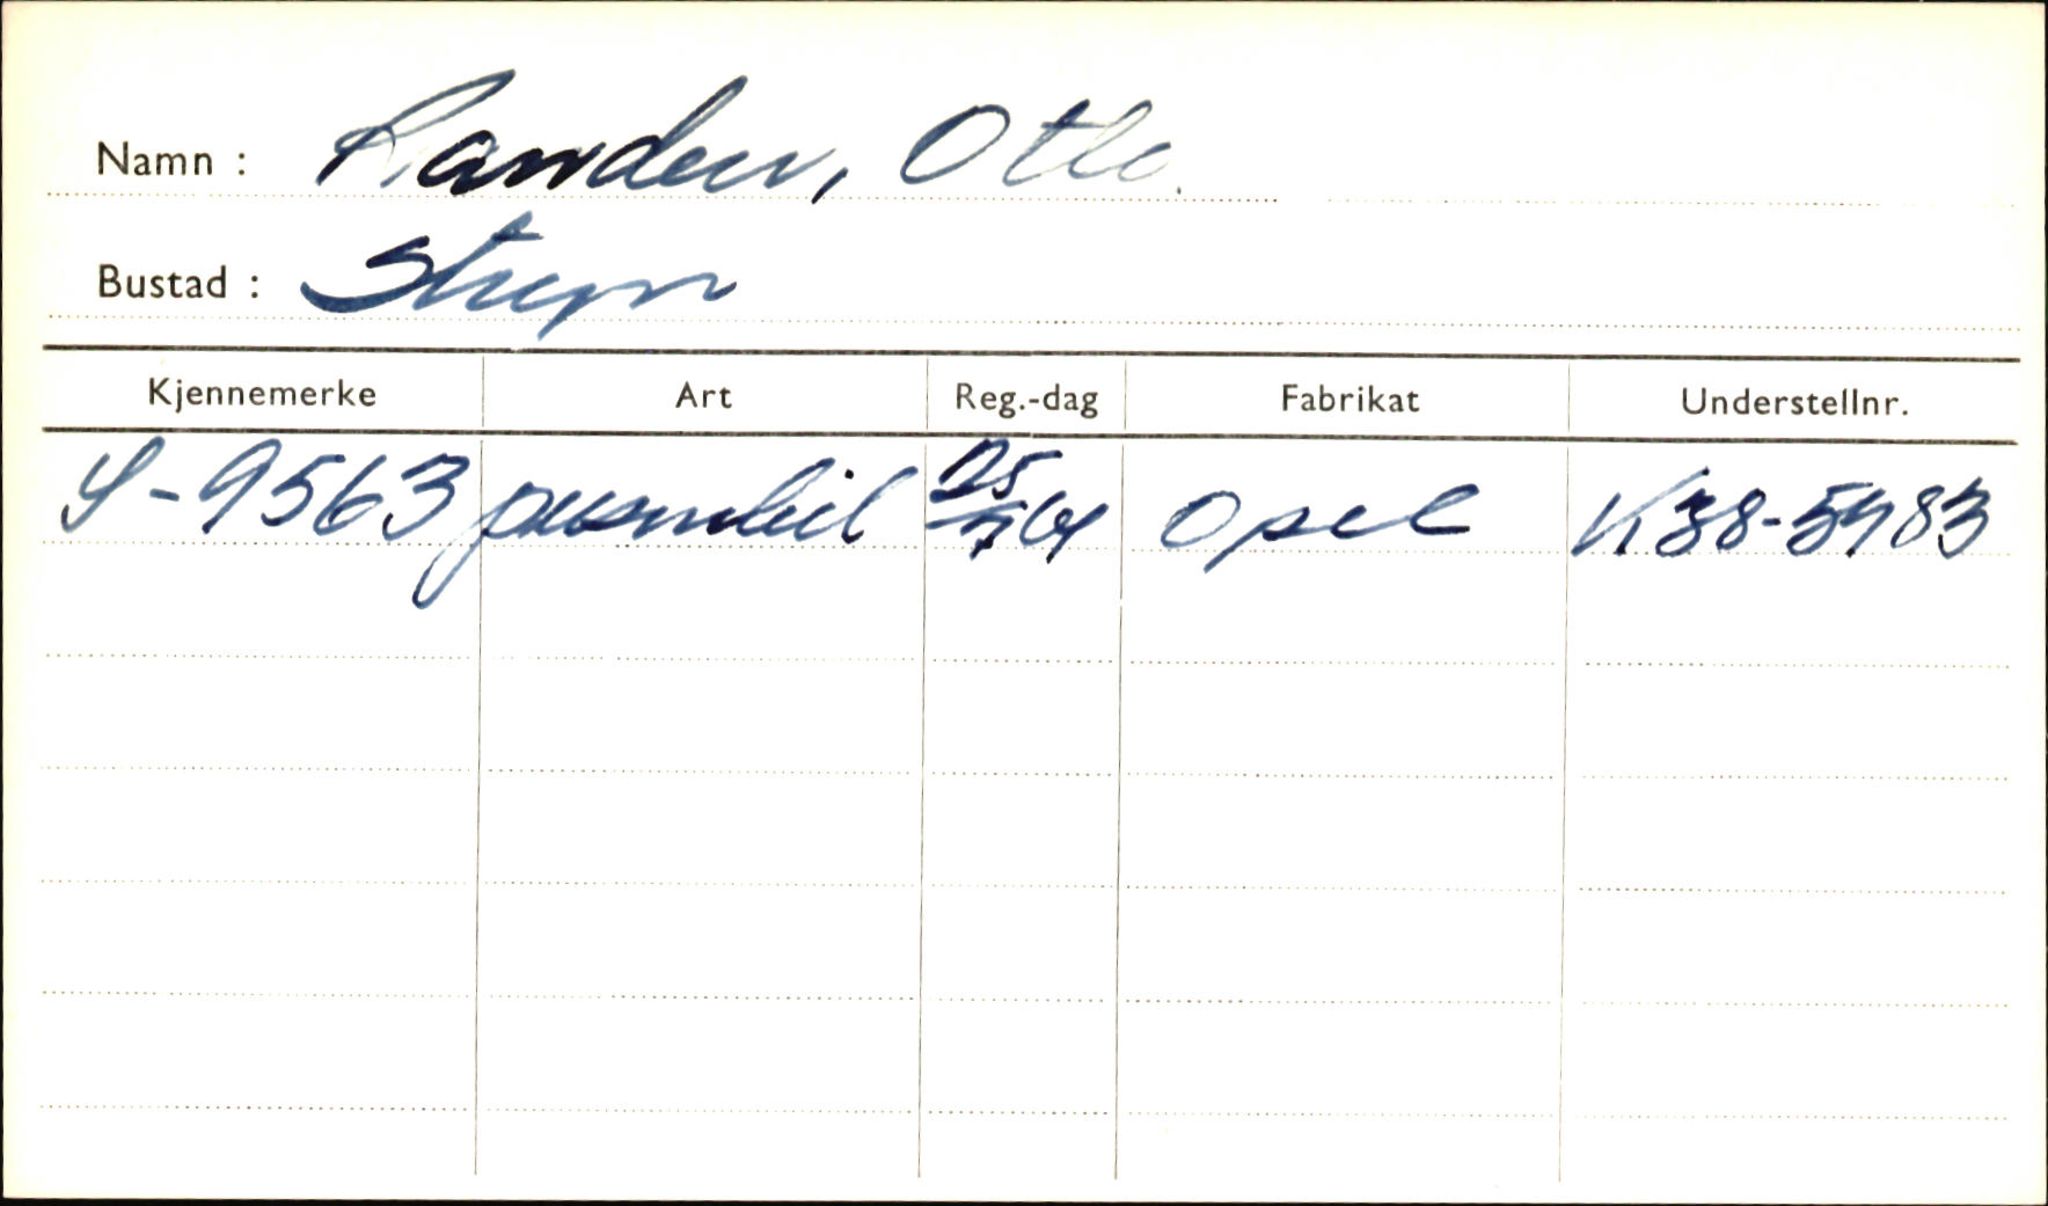 Namn : Randen, Otto.
Bustad : Stryn
Kjennemerke Art Reg.-dag Fabrikat Understellnr.
S-9563 personbil 25/7 64 Opel K38-5483